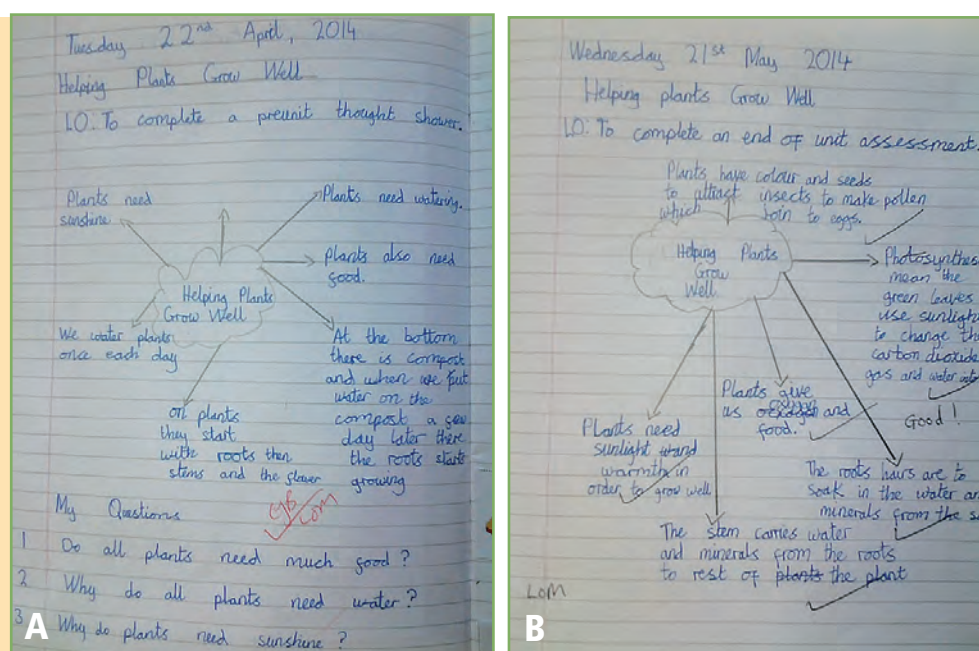 Tuesday 22nd April, 2014
Helping Plants Grow Well
LO: To complete a preunit thought shower.
Plants need
sunshine
Plants need watering.
Plants also need
food.
Helping Plants
Grow Well
We water plants
once each day
At the bottom
there is compost
and when we put
water on the
compost a few
day later there
the roots starts
growing
on plants
they start
with roots then
stems and the flower
My Questions
LOM
1 Do all plants need much food?
2 Why do all plants need water?
3 Why do plants need sunshine?
A
Wednesday 21st May 2014
Helping plants Grow Well
LO: To complete an end of unit assessment.
Plants have colour and seeds
to attract insects to make pollen
which join to eggs.
Helping Plants
Grow
Well
Photosynthes
mean the
green leaves
use sunlight
to change the
carbon dioxide
gas and water
Good!
Plants give
us and
food.
Plants need
sunlight and
warmth in
order to grow well
The roots hairs are to
soak in the water an
minerals from the s
The stem carries water
and minerals from the roots
to rest of plants the plant
LOM
B